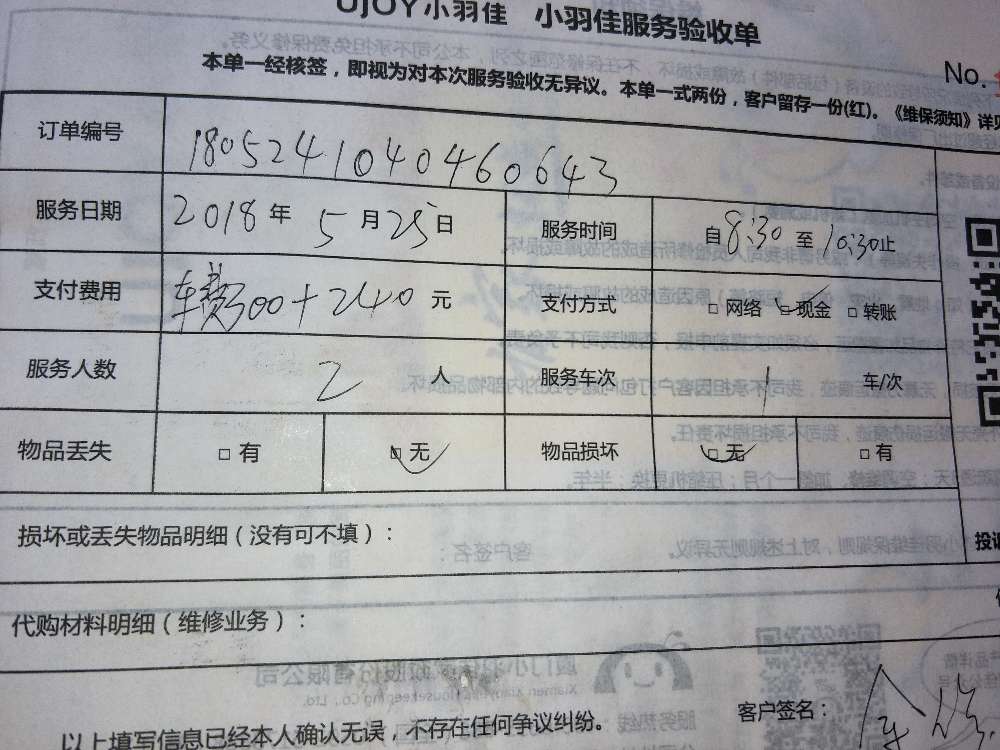 UJOY小羽佳 小羽佳服务验收单
No.
本单一经核签，即视为对本次服务验收无异议。本单一式两份，客户留存一份(红)。《维保须知》详见
订单编号 1805241040460643
服务日期 2018年 5月25日 服务时间 自8:30至10:30止
支付费用 车费300+240元 支付方式 □网络 □现金 □转账
服务人数 2人 服务车次 1 车/次
物品丢失 □有 □无 物品损坏 □无 □有
损坏或丢失物品明细（没有可不填）：
投诉
代购材料明细（维修业务）：
客户签名：
以上填写信息已经本人确认无误，不存在任何争议纠纷。